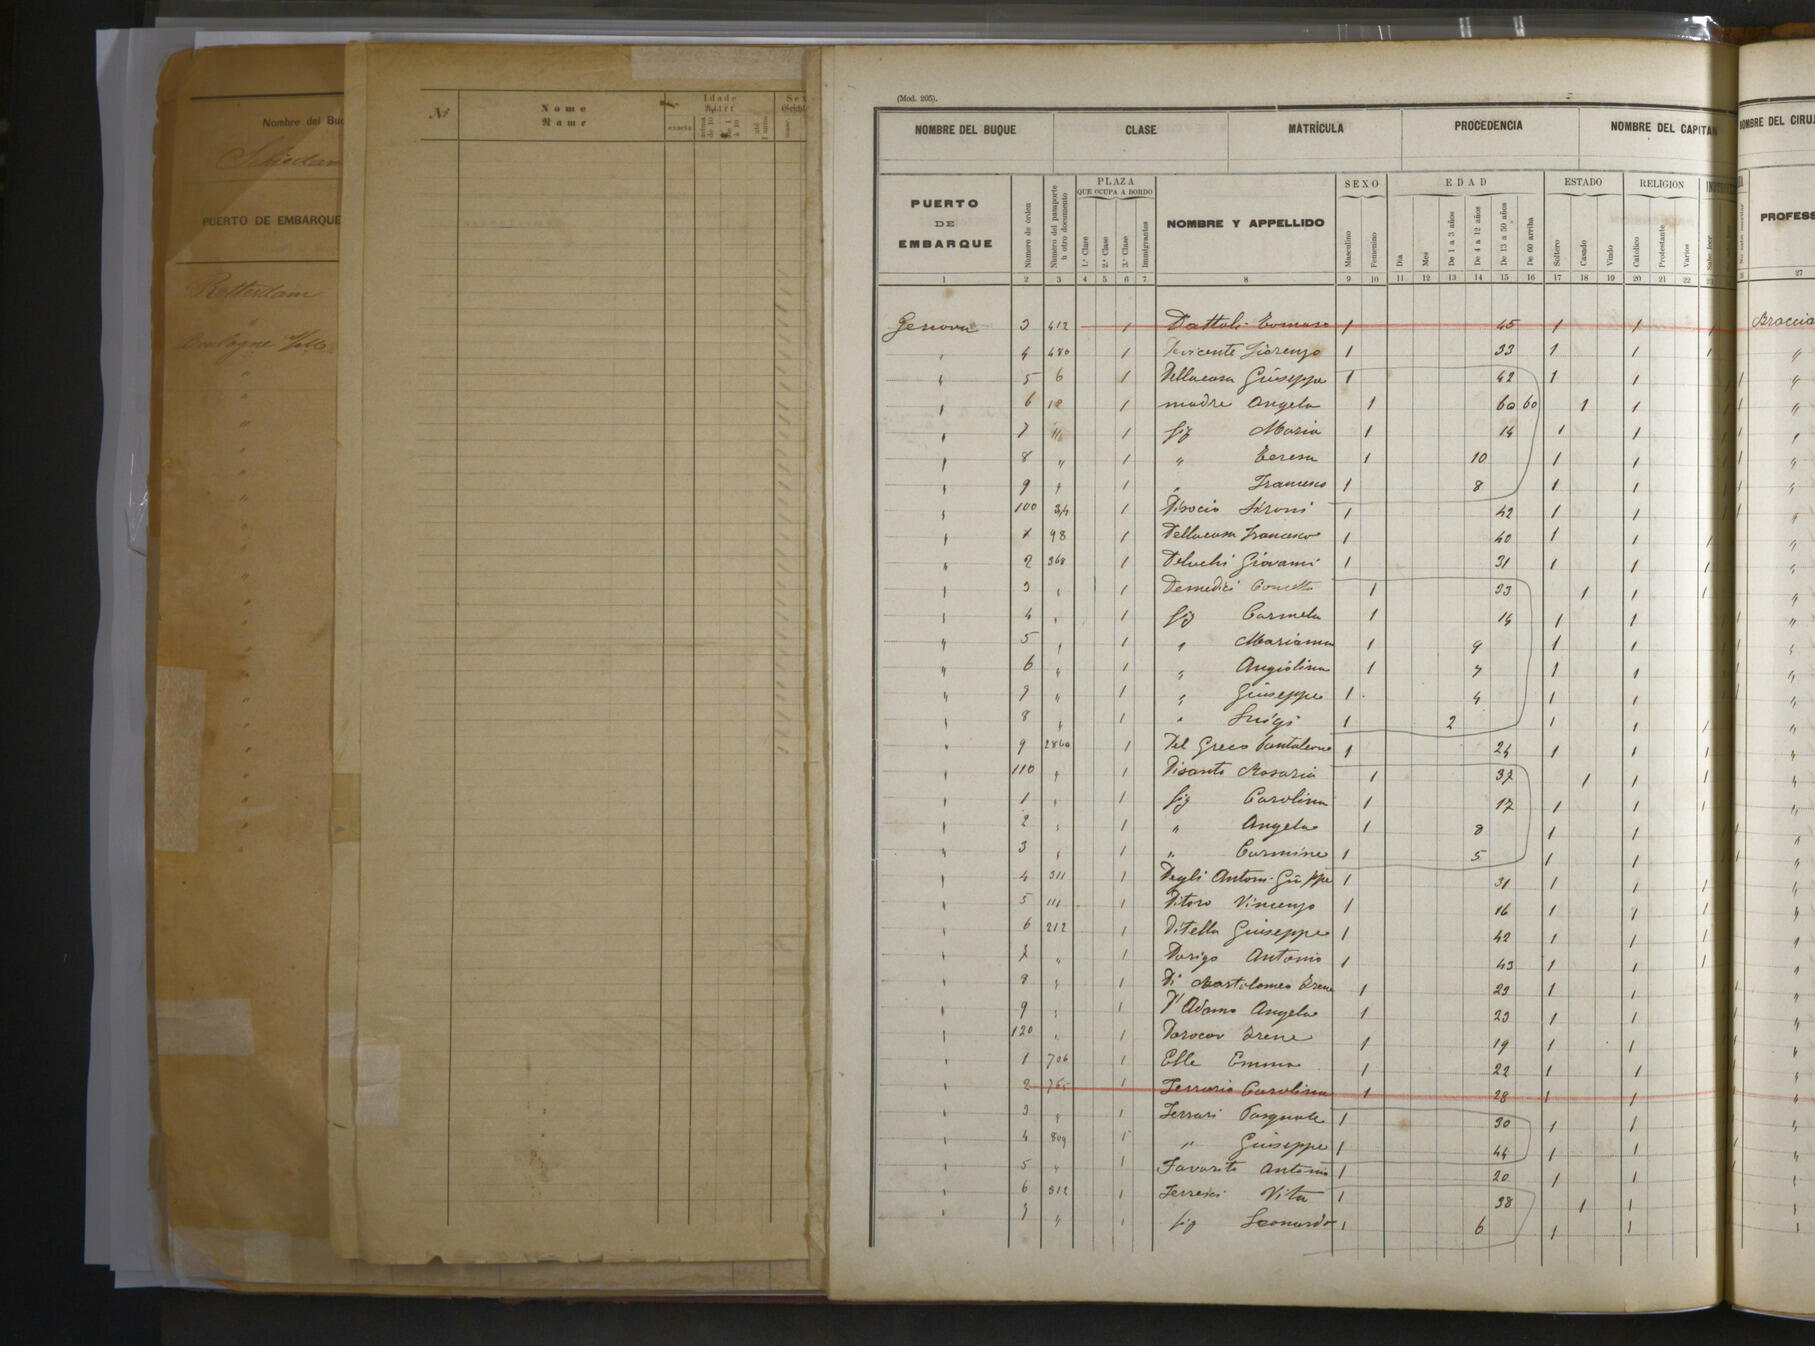 Nombre del Buq
Schiedam
PUERTO DE EMBARQUE
Rotterdam
Boulogne
Nº
Nome
Name
Idade
exacta
(Mod. 205).
NOMBRE DEL BUQUE CLASE MATRÍCULA PROCEDENCIA NOMBRE DEL CAPITAN
NOMBRE DEL CIRUJ
PUERTO DE EMBARQUE
Número de órden
Número del pasaporte ú otro documento
PLAZA
QUE OCUPA A BORDO
1.ª Clase 2.ª Clase 3.ª Clase Inmigrantes
NOMBRE Y APPELLIDO
SEXO
Masculino Femenino
EDAD
Dia Mes De 1 a 3 años De 4 a 12 años De 13 a 59 años De 60 arriba
ESTADO
Soltero Casado Viudo
RELIGION
Católico Protestante Varios
Sabe leer
PROFESS
1 2 3 4 5 6 7 8 9 10 11 12 13 14 15 16 17 18 19 20 21 22 27
Genova 3 412 1 Dattoli Tomaso 1 45 1 1 1
" 4 480 1 Lorenzo 1 33 1 1 1
" 5 6 1 Dellacasa Giuseppe 1 42 1 1 1
" 6 1 madre Angela 1 60 60 1 1 1
" 7 " 1 fig Maria 1 14 1 1 1
" 8 " 1 " Teresa 1 10 1 1 1
" 9 " 1 " Francesco 1 8 1 1 1
" 100 34 1 1 42 1 1
" 1 98 1 Dellacasa Francesco 1 40 1 1 1
" 2 368 1 Deluchi Giovanni 1 31 1 1 1
" 3 " 1 Demedici Concetta 1 33 1 1 1
" 4 " 1 fig Carmela 1 14 1 1 1
" 5 " 1 " Marianna 1 9 1 1 1
" 6 " 1 " Angiolina 1 7 1 1 1
" 7 " 1 " Giuseppe 1 4 1 1 1
" 8 " 1 " Luigi 1 2 1 1 1
" 9 2860 1 Del Greco Pantaleone 1 24 1 1 1
" 110 " 1 Disanto Rosaria 1 37 1 1 1
" 1 " 1 fig Carolina 1 17 1 1 1
" 2 " 1 " Angela 1 8 1 1 1
" 3 " 1 " Carmine 1 5 1 1 1
" 4 311 1 Degli Antoni Giuppe 1 31 1 1 1
" 5 111 1 Ditoro Vincenzo 1 16 1 1 1
" 6 212 1 Ditella Giuseppe 1 42 1 1 1
" 7 " 1 Dorigo Antonio 1 43 1 1 1
" 8 " 1 Di Bartolomeo Irene 1 23 1 1 1
" 9 " 1 D'Adamo Angela 1 23 1 1 1
" 120 " 1 Irene 1 19 1 1 1
" 1 706 1 Elle Emma 1 22 1 1 1
" 2 765 1 Ferrario Carolina 1 28 1 1
" 3 " 1 Ferrari Pasquale 1 30 1 1
" 4 809 1 " Giuseppe 1 44 1 1 1
" 5 " 1 Favorito Antonio 1 20 1 1 1
" 6 312 1 Vita 1 38 1 1 1
" 7 " 1 fig Leonardo 1 6 1 1 1